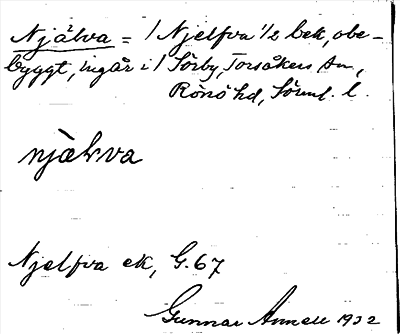 Njälva = / Njelfva 1/2 bek, obe-
byggt, ingår i / Sörby, Torsåkers sn,
Rönö hd, Söüml. l.
njälva
Njelfva ek, G. 67
Gunnar Annell 1932